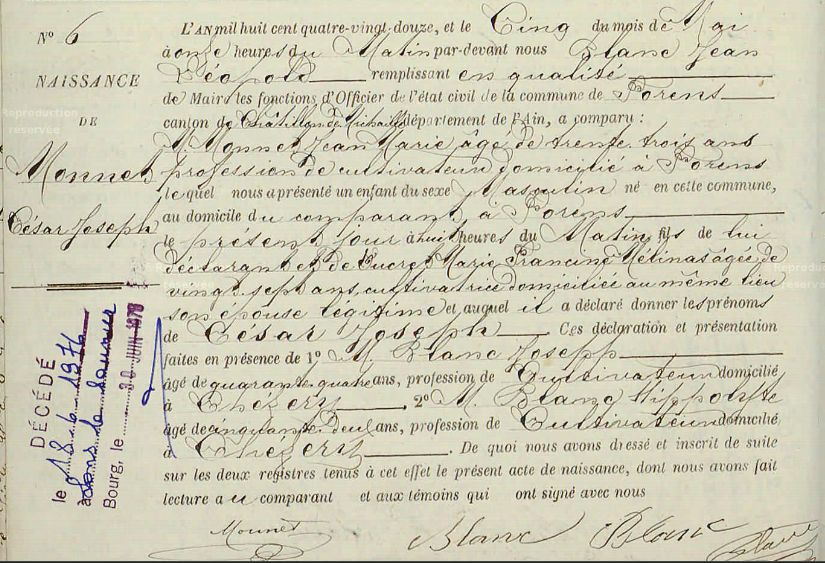 N° 6
NAISSANCE
DE
Monnet
César Joseph
L'AN mil huit cent quatre-vingt-douze, et le Cinq du mois de Mai
à onze heures du Matin par-devant nous Blanc Jean
Léopold remplissant en qualité
de Maire les fonctions d'Officier de l'état civil de la commune de Forens
canton de Châtillon de Michaille département de l'Ain, a comparu :
M. Monnet Jean Marie âgé de trente trois ans
profession de cultivateur domicilié à Forens
lequel nous a présenté un enfant du sexe Masculin né en cette commune,
au domicile du comparant, à Forens
le présent jour à huit heures du Matin, fils de lui
déclarant et de Ducret Marie Francine Mélina âgée de
vingt sept ans, cultivatrice domiciliée au même lieu
son épouse légitime et auquel il a déclaré donner les prénoms
de César Joseph Ces déclaration et présentation
faites en présence de 1° M. Blanc Joseph
âgé de quarante quatre ans, profession de Cultivateur domicilié
à Chézery, 2° M. Blanc Hippolyte
âgé de cinquante deux ans, profession de Cultivateur domicilié
à Chézery. De quoi nous avons dressé et inscrit de suite
sur les deux registres tenus à cet effet le présent acte de naissance, dont nous avons fait
lecture au comparant et aux témoins qui ont signé avec nous
Monnet Blanc Blanc Blanc
DÉCÉDÉ
le 18.6.1976
à
Bourg, le 30 JUIN 1976
Reproduction
réservée